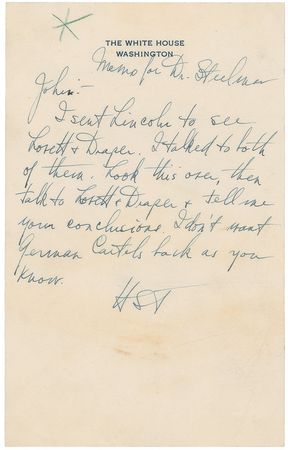 THE WHITE HOUSE
WASHINGTON
Memo for Dr. Steelman
John:-
I sent Lincoln to see
Lovett & Draper. I talked to both
of them. Look this over, then
talk to Lovett & Draper & tell me
your conclusions. I don't want
German Cartels back as you
know.
HST